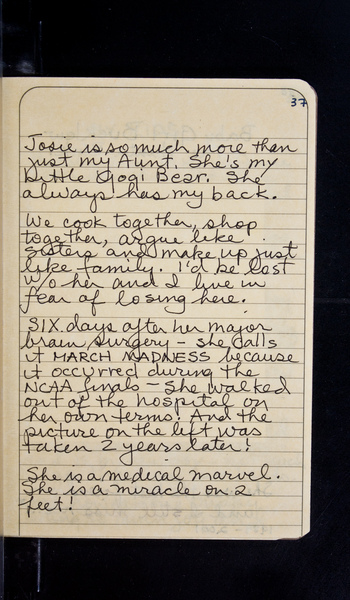 37
Josie is so much more than
just my Aunt. She's my
Little Yogi Bear. She
always has my back.
We cook together, shop
together, argue like
sisters and make up just
like family. I'd be lost
w/o her and I live in
fear of losing here.
SIX days after her major
brain surgery - she calls
it MARCH MADNESS because
it occurred during the
NCAA finals - She walked
out of the hospital on
her own terms! And the
picture on the left was
taken 2 years later!
She is a medical marvel.
She is a miracle on 2
feet!